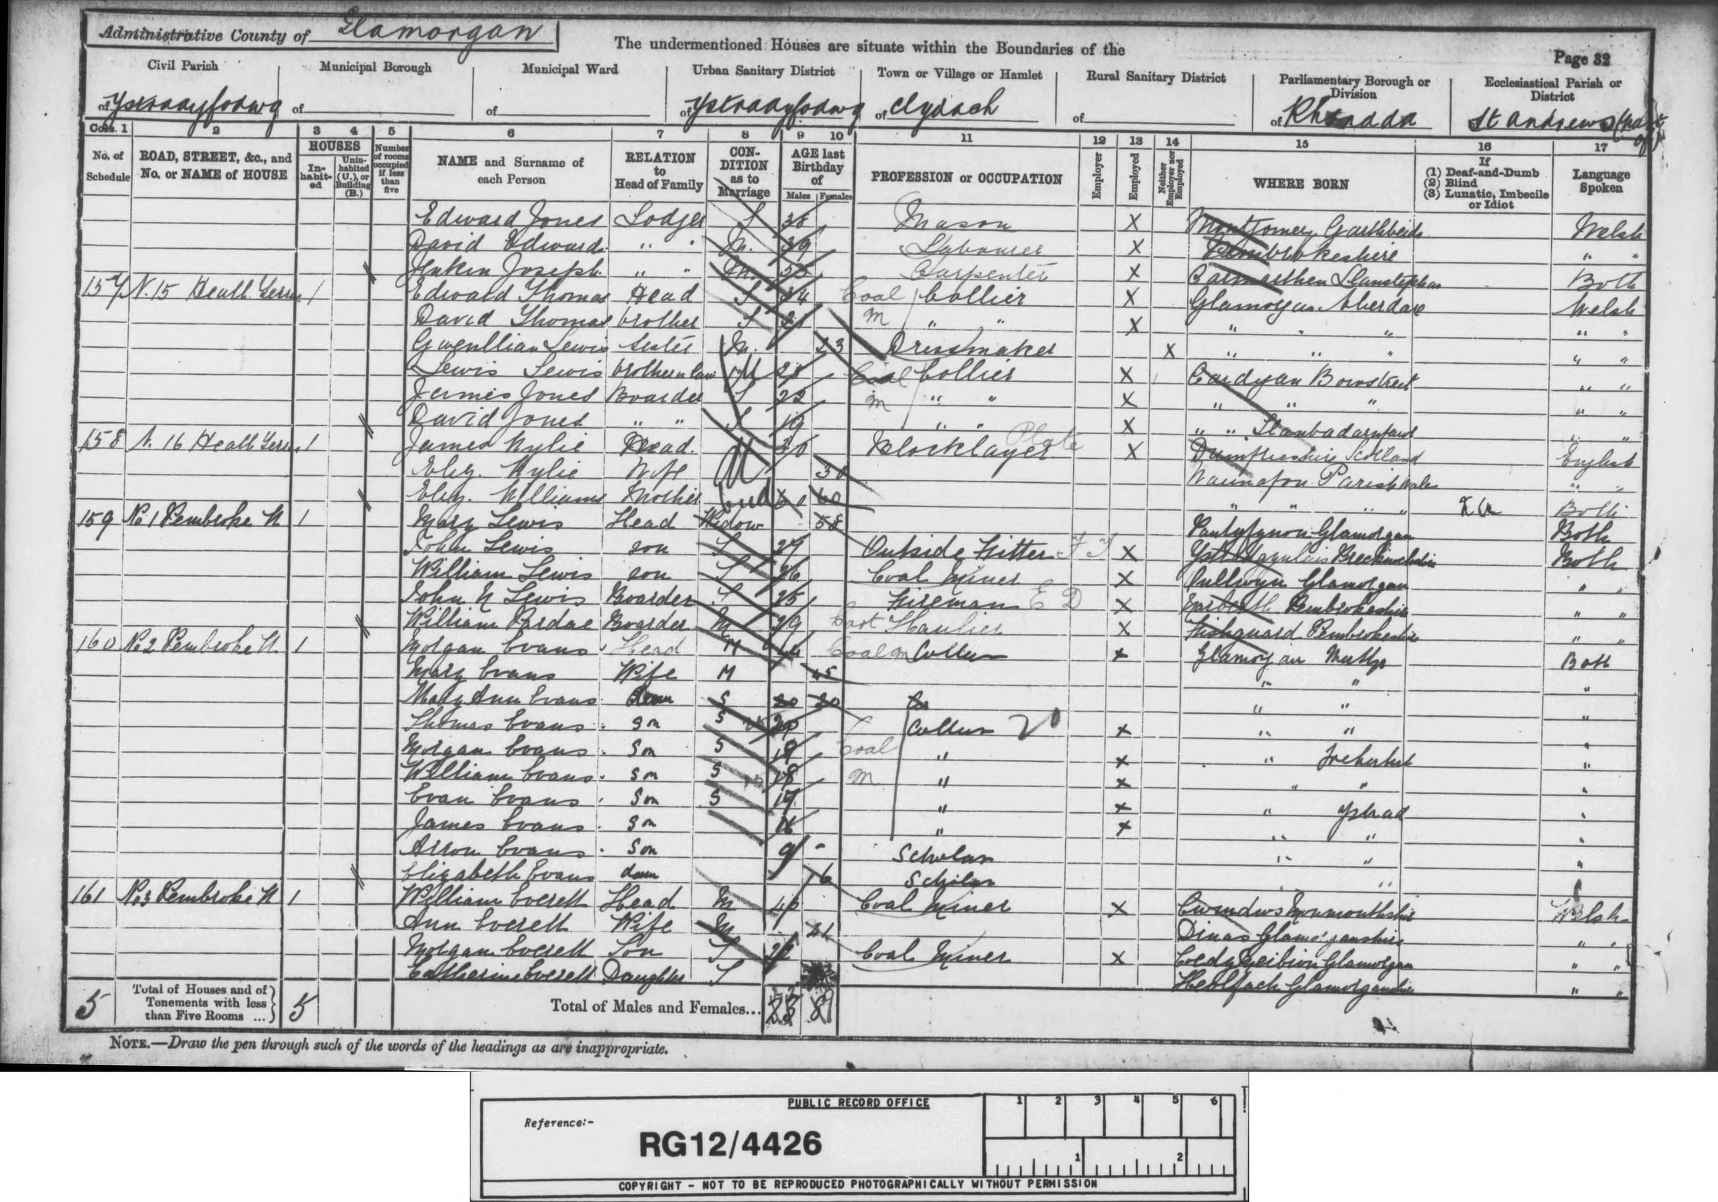 Administrative County of Glamorgan
The undermentioned Houses are situate within the Boundaries of the
Page 32
Civil Parish Municipal Borough Municipal Ward Urban Sanitary District Town or Village or Hamlet Rural Sanitary District Parliamentary Borough or Division Ecclesiastical Parish or District
of Ystradyfodwg of of of Ystradyfodwg of Clydach of of Rhondda of St Andrews
Cols. 1 2 3 4 5 6 7 8 9 10 11 12 13 14 15 16 17
No. of Schedule ROAD, STREET, &c., and No. or NAME of HOUSE HOUSES Inhabited Uninhabited (U.), or Building (B.) Number of rooms occupied if less than five NAME and Surname of each Person RELATION to Head of Family CONDITION as to Marriage AGE last Birthday of Males Females PROFESSION or OCCUPATION Employer Employed Neither Employer nor Employed WHERE BORN If (1) Deaf-and-Dumb (2) Blind (3) Lunatic, Imbecile or Idiot Language Spoken
Edward Jones Lodger S Mason X Montgomery Welsh
David Edward " " M. 39 Labourer X Pembrokeshire " "
Jenkin Joseph " " M. Carpenter X Carmarthen Llanstephan Both
157 N. 15 Heath Terrace 1 Edward Thomas Head S 24 Coal Collier X Glamorgan Aberdare Welsh
David Thomas brother S m " " X " " " " "
Gwenllian Lewis sister M. 23 Dressmaker X " " " " "
Lewis Lewis brother in law M Coal Collier X Cardigan Bowstreet " "
James Jones Boarder S 22 m " " X " " " " "
David Jones " " S 19 " " X " " Llanbadarnfawr " "
158 N. 16 Heath Terrace 1 James Wylie Head. M Blocklayer Plate X Dumfriesshire Scotland English
Eliz. Wylie Wife 30 Parish " "
Eliz. Williams Mother Wid 60 " " " " Both
159 No 1 Pembroke St 1 Mary Lewis Head Widow 58 Glamorgan Both
John Lewis son S 27 Outside Fitter F T X Ystradgynlais Brecknockshire Both
William Lewis son S 26 Coal Miner X Glamorgan " "
John N Lewis Boarder S 25 Fireman E D X Pembrokeshire " "
William Pardoe Boarder M 29 Cart Haulier X Fishguard Pembrokeshire " "
160 No 2 Pembroke St 1 Morgan Evans Head M Coal m Cutter x Glamorgan Merthyr Both
Mary Evans Wife M 45 " " "
Mary Ann Evans daur S 20 20 " " "
Thomas Evans son S 20 Cutter 20 x " " "
Morgan Evans Son S 19 Coal " x " Treherbert "
William Evans son S 18 m " x " " "
Evan Evans Son S 17 " x " Ystrad "
James Evans Son 16 " x " " "
Arron Evans Son 9 Scholar " " "
Elizabeth Evans daur 6 Scholar " "
161 No 3 Pembroke St 1 William Everett Head M 46 Coal Miner X Monmouthshire Welsh
Ann Everett Wife M Dinas Glamorganshire " "
Morgan Everett Son S Coal Miner X Glamorgan " "
Catherine Everett Daughter S Heolfach Glamorganshire " "
5 Total of Houses and of Tenements with less than Five Rooms ... 5 Total of Males and Females... 23 8
NOTE.—Draw the pen through such of the words of the headings as are inappropriate.
PUBLIC RECORD OFFICE 1 2 3 4 5 6
Reference:-
RG12/4426
1 2
COPYRIGHT - NOT TO BE REPRODUCED PHOTOGRAPHICALLY WITHOUT PERMISSION